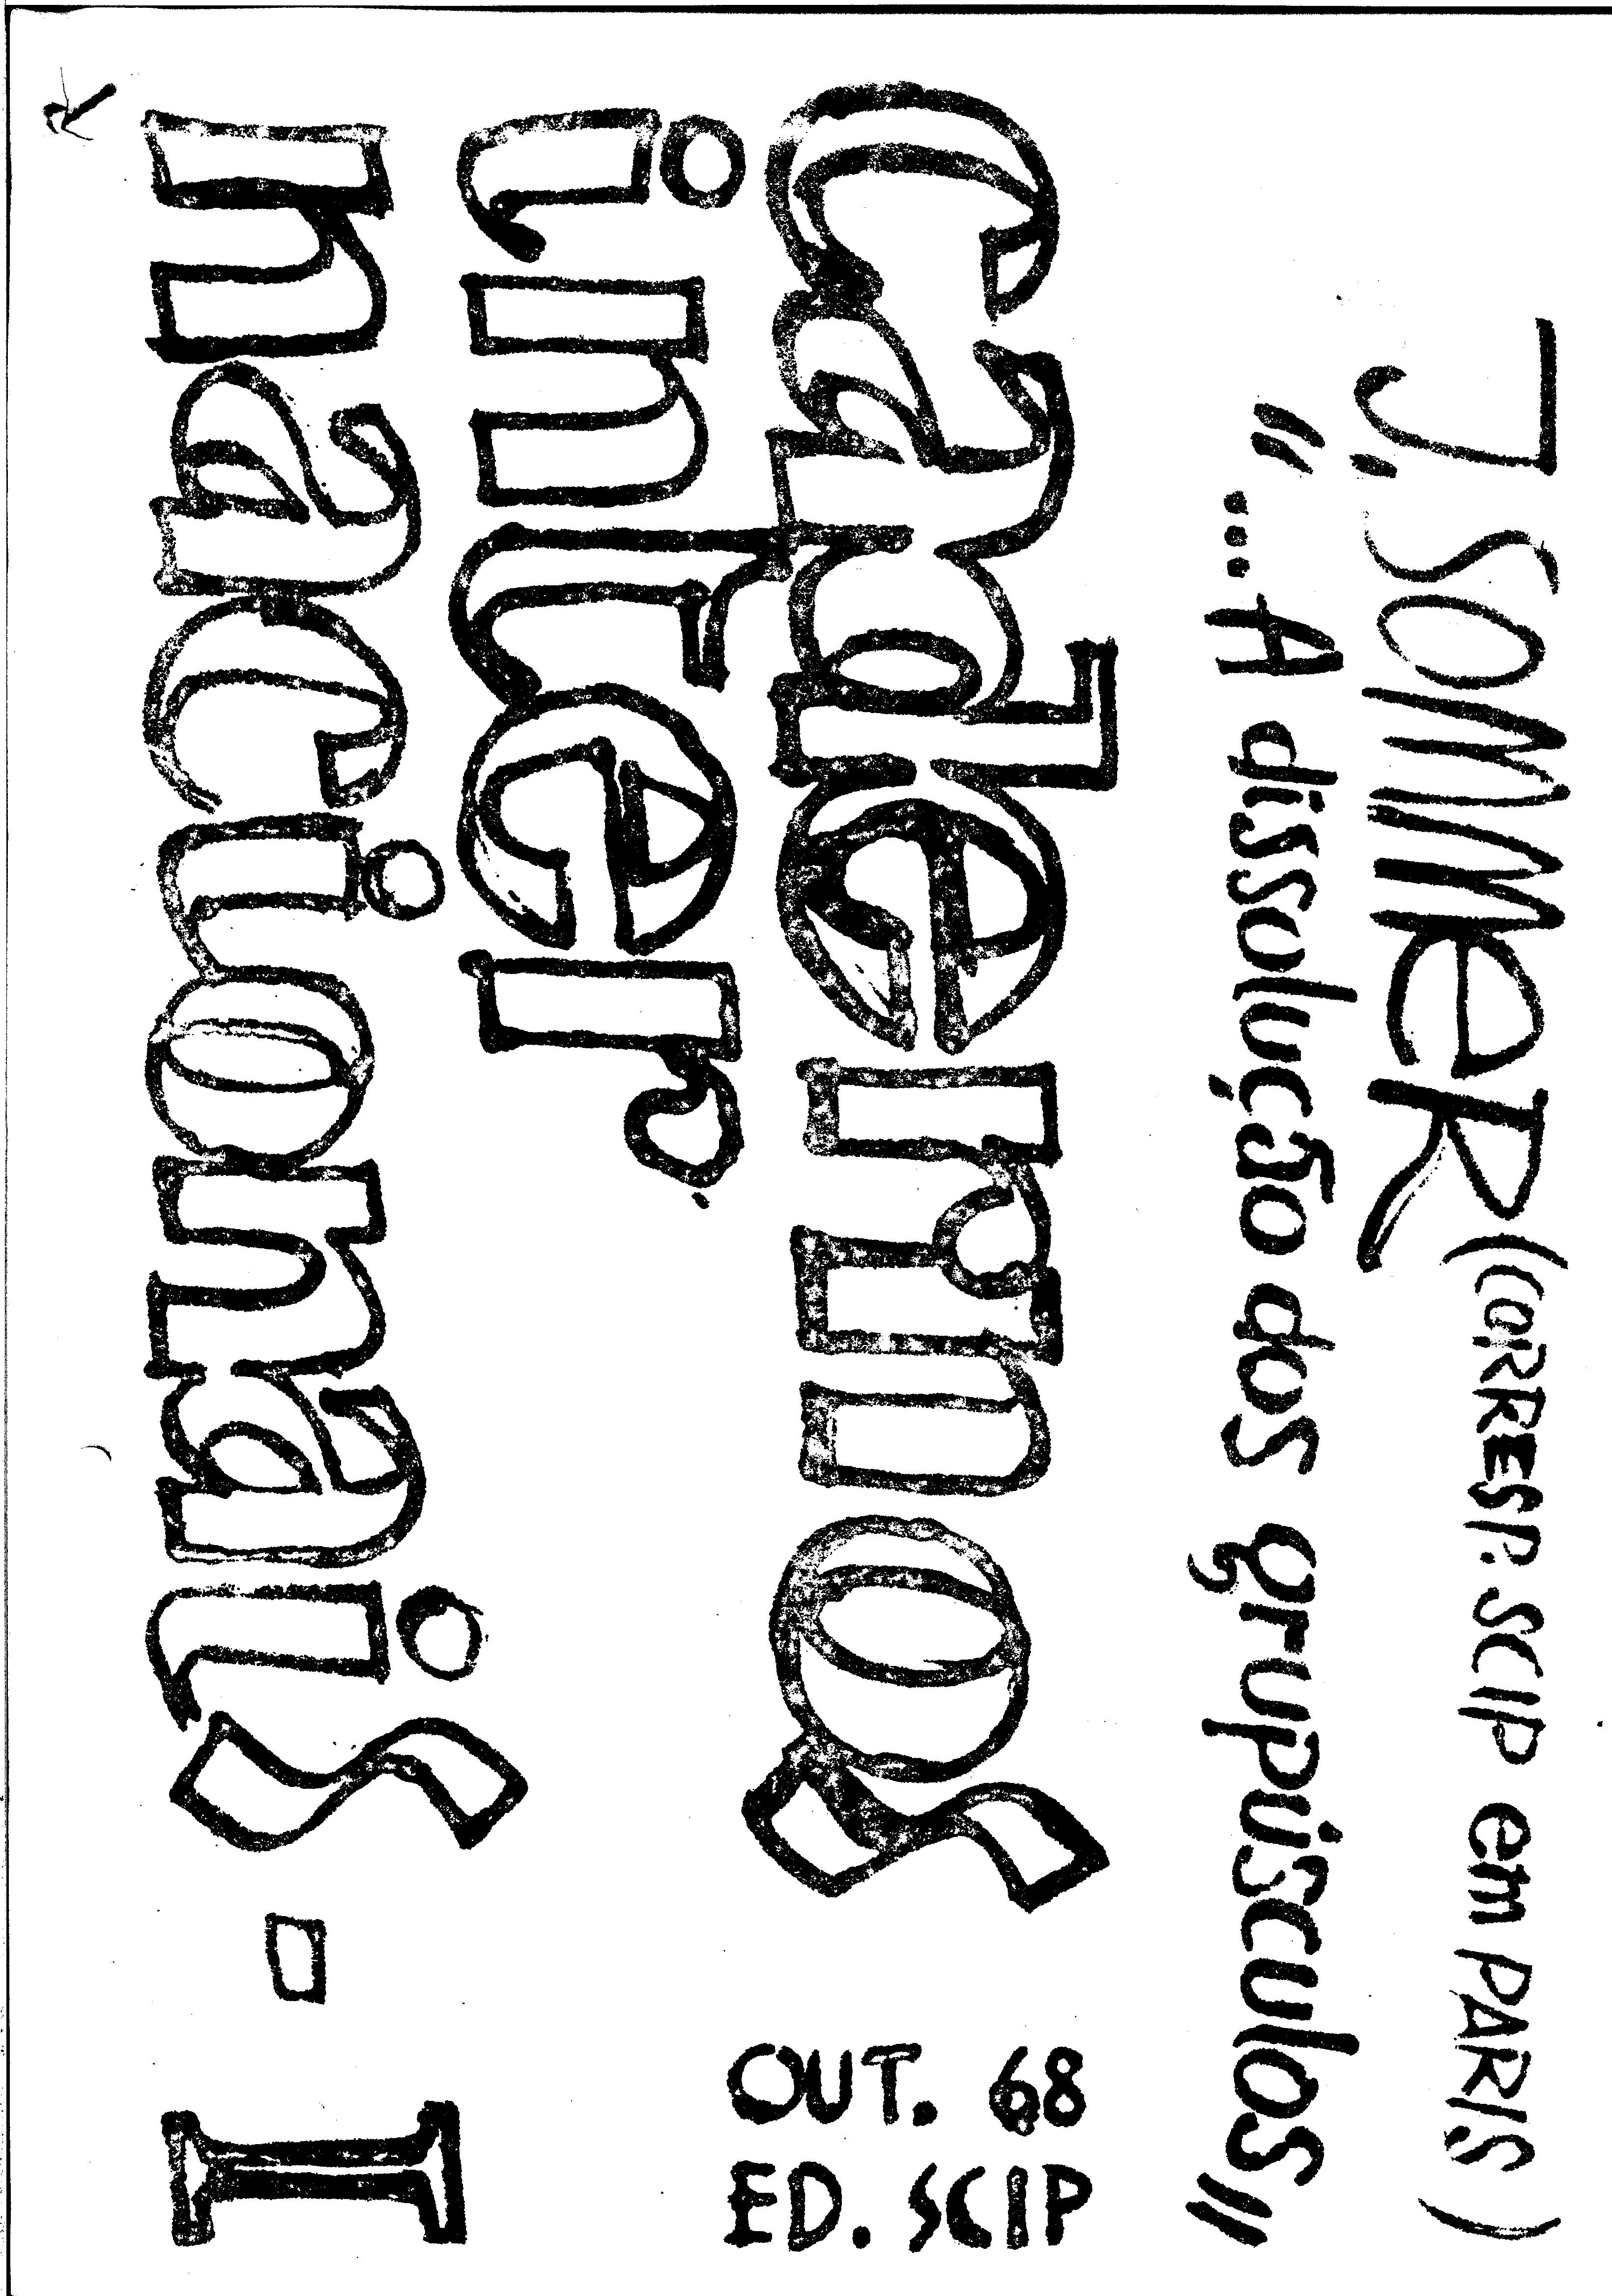 J. SOMMER (CORRESP. SCIP em PARIS)
"... A dissolução dos grupúsculos"
Cadernos
inter
nacionais - I
OUT. 68
ED. SCIP